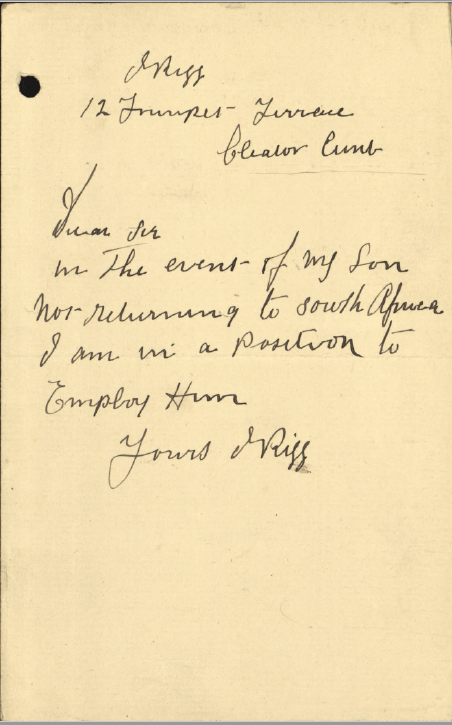 J Rigg
12 Trumpet Terrace
Cleator Cumb
Dear Sir
in the event of my Son
Not returning to South Africa
I am in a position to
Employ Him
Yours J Rigg